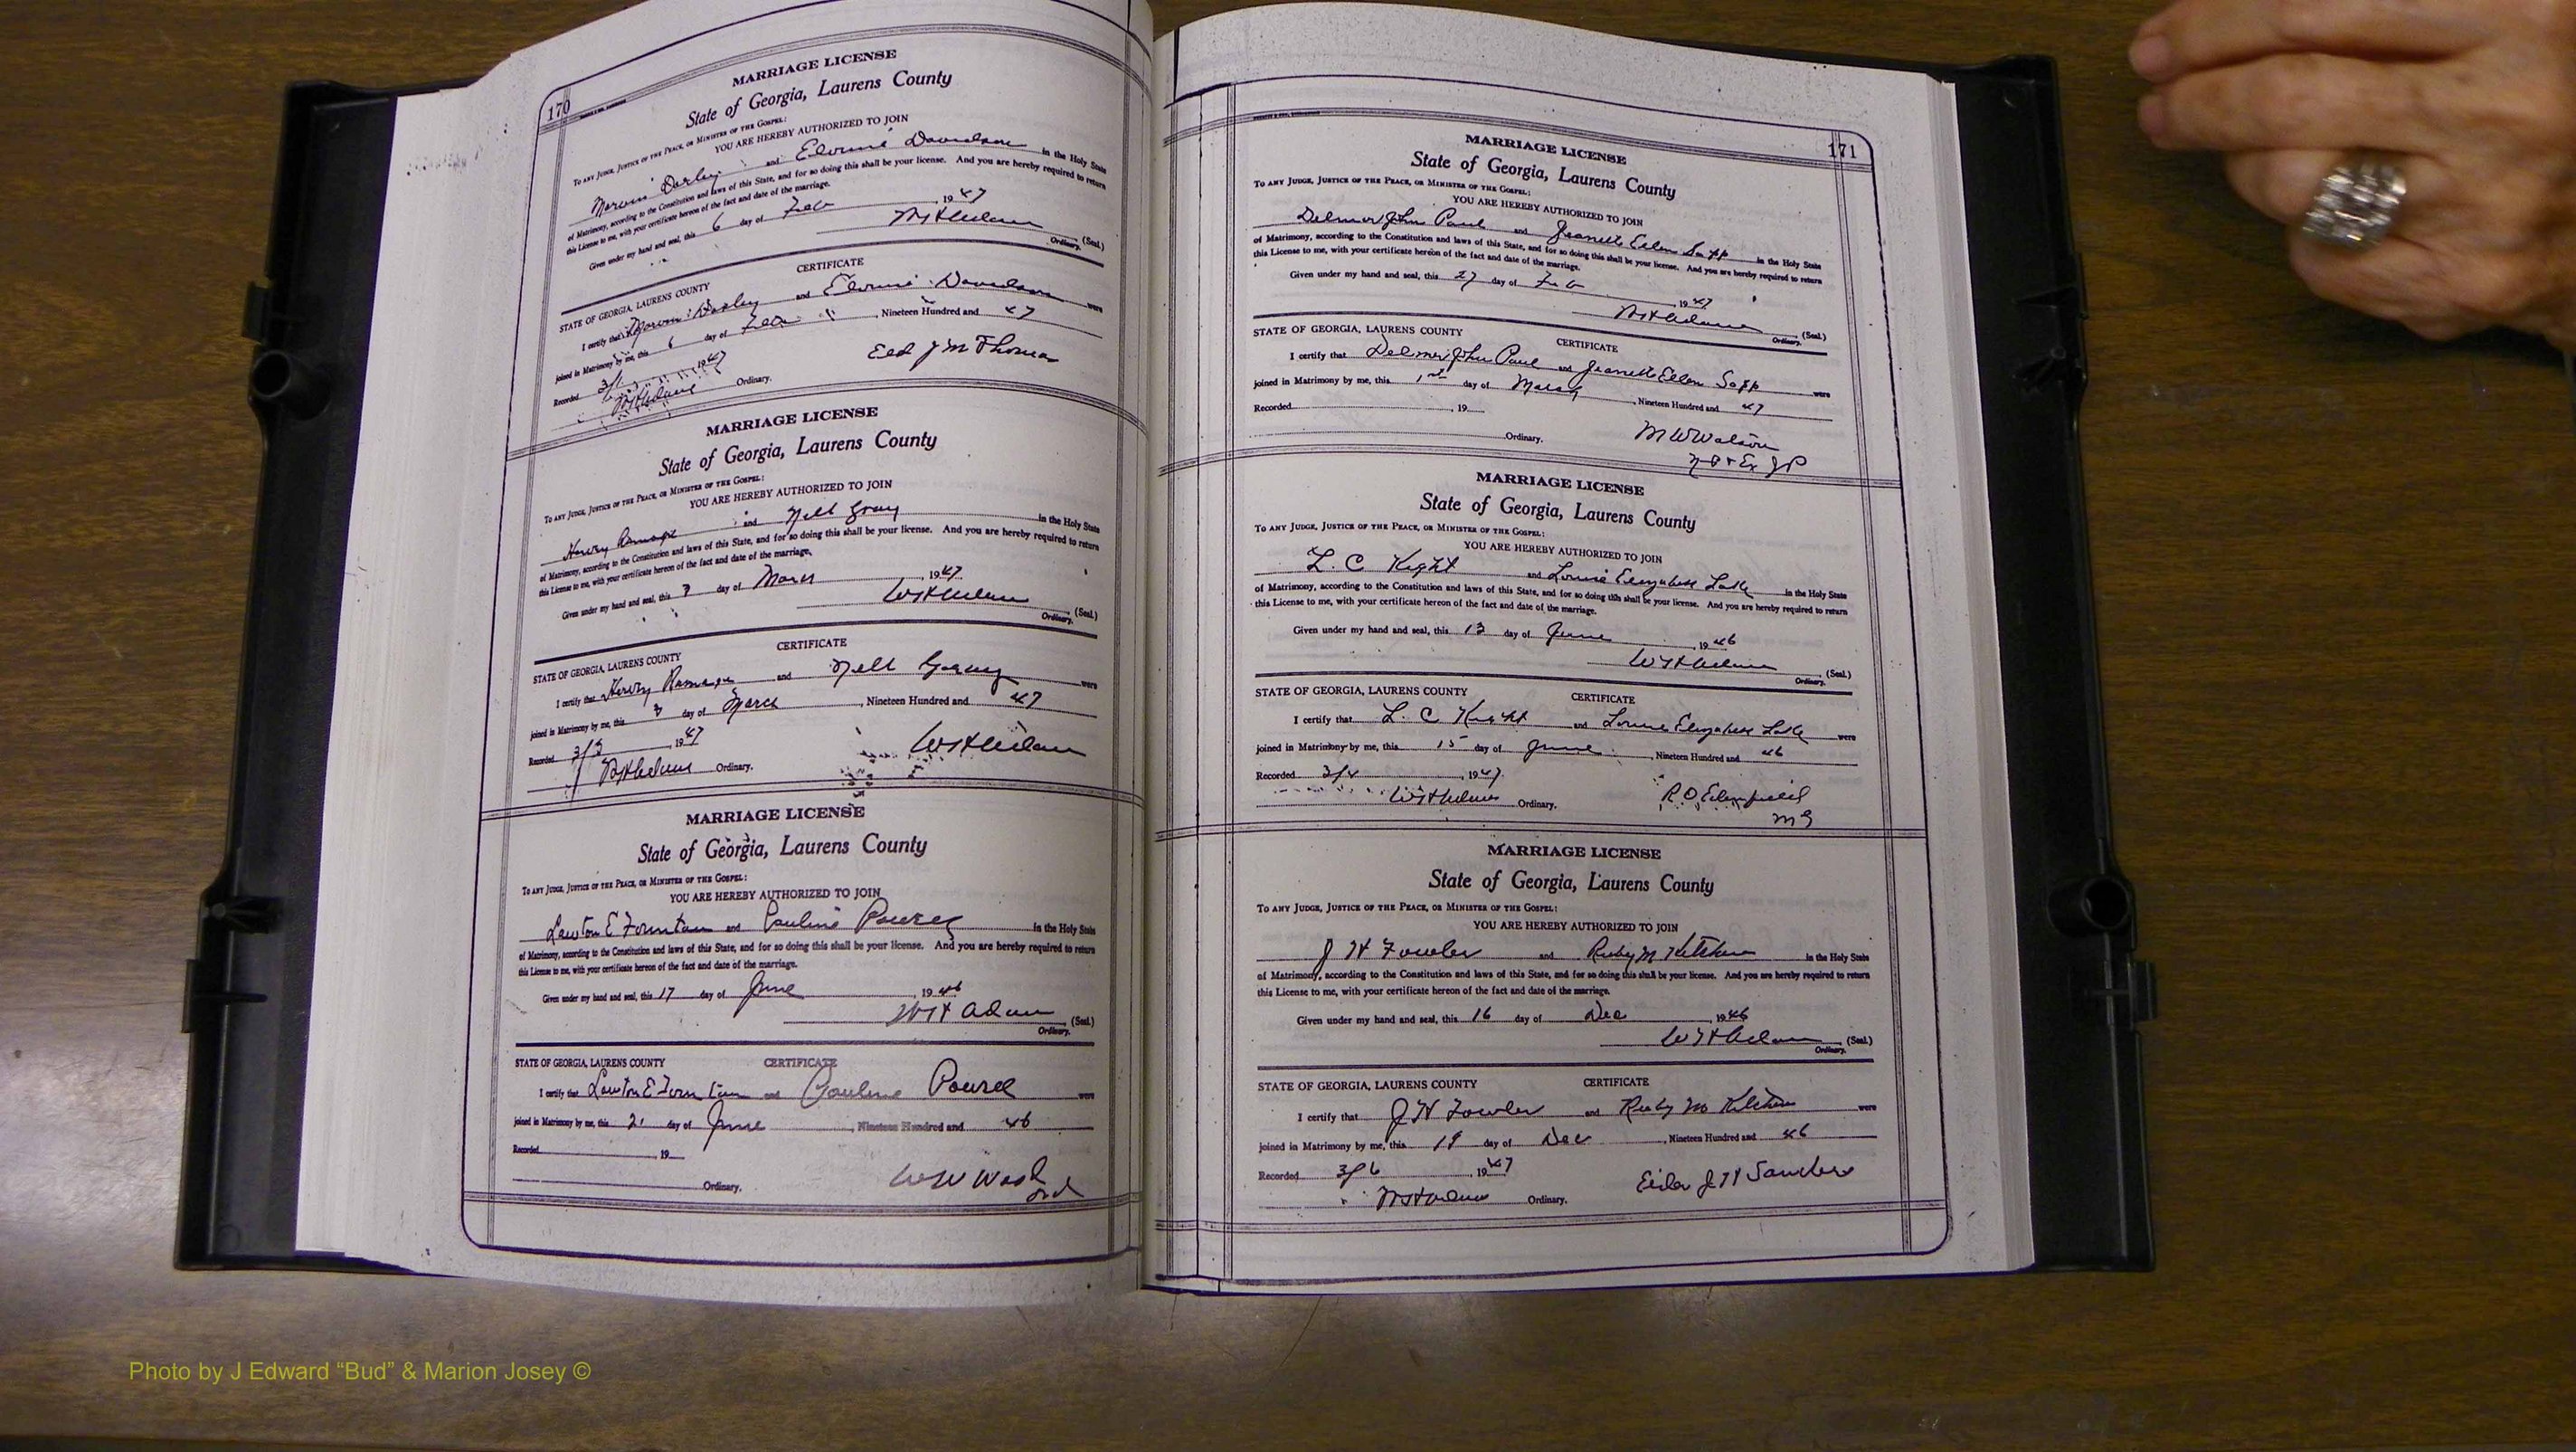 170
MARRIAGE LICENSE
State of Georgia, Laurens County
TO ANY JUDGE, JUSTICE OF THE PEACE, OR MINISTER OF THE GOSPEL:
YOU ARE HEREBY AUTHORIZED TO JOIN
Marvin Darley and Davidson in the Holy State
of Matrimony, according to the Constitution and laws of this State, and for so doing this shall be your license. And you are hereby required to return
this License to me, with your certificate hereon of the fact and date of the marriage.
Given under my hand and seal, this 6 day of Feb, 1947
(Seal.)
Ordinary.
CERTIFICATE
STATE OF GEORGIA, LAURENS COUNTY
I certify that Marvin Darley and Davidson were
joined in Matrimony by me, this 6 day of Feb, Nineteen Hundred and 47
Recorded 3/1 1947
Eld J M Thomas
Ordinary.
MARRIAGE LICENSE
State of Georgia, Laurens County
TO ANY JUDGE, JUSTICE OF THE PEACE, OR MINISTER OF THE GOSPEL:
YOU ARE HEREBY AUTHORIZED TO JOIN
and Nell Gray in the Holy State
of Matrimony, according to the Constitution and laws of this State, and for so doing this shall be your license. And you are hereby required to return
this License to me, with your certificate hereon of the fact and date of the marriage.
Given under my hand and seal, this 3 day of March, 1947
(Seal.)
Ordinary.
CERTIFICATE
STATE OF GEORGIA, LAURENS COUNTY
I certify that and Nell were
joined in Matrimony by me, this 3 day of March, Nineteen Hundred and 47
Recorded 3/3, 1947
Ordinary.
MARRIAGE LICENSE
State of Georgia, Laurens County
TO ANY JUDGE, JUSTICE OF THE PEACE, OR MINISTER OF THE GOSPEL:
YOU ARE HEREBY AUTHORIZED TO JOIN
Lawton E Fountain and Pauline in the Holy State
of Matrimony, according to the Constitution and laws of this State, and for so doing this shall be your license. And you are hereby required to return
this License to me, with your certificate hereon of the fact and date of the marriage.
Given under my hand and seal, this 17 day of June, 1946
(Seal.)
Ordinary.
STATE OF GEORGIA, LAURENS COUNTY CERTIFICATE
I certify that Lawton E Fountain and Pauline were
joined in Matrimony by me, this 21 day of June, Nineteen Hundred and 46
Recorded, 19
Ordinary.
171
MARRIAGE LICENSE
State of Georgia, Laurens County
TO ANY JUDGE, JUSTICE OF THE PEACE, OR MINISTER OF THE GOSPEL:
YOU ARE HEREBY AUTHORIZED TO JOIN
Delmer John Paul and Jeanette Ellen Sapp in the Holy State
of Matrimony, according to the Constitution and laws of this State, and for so doing this shall be your license. And you are hereby required to return
this License to me, with your certificate hereon of the fact and date of the marriage.
Given under my hand and seal, this 27 day of Feb, 1947
(Seal.)
Ordinary.
STATE OF GEORGIA, LAURENS COUNTY CERTIFICATE
I certify that Delmer John Paul and Jeanette Ellen Sapp were
joined in Matrimony by me, this 1st day of March, Nineteen Hundred and 47
Recorded, 19
Ordinary. M W Watson
N P & Ex J P
MARRIAGE LICENSE
State of Georgia, Laurens County
TO ANY JUDGE, JUSTICE OF THE PEACE, OR MINISTER OF THE GOSPEL:
YOU ARE HEREBY AUTHORIZED TO JOIN
L. C Kight and Elizabeth in the Holy State
of Matrimony, according to the Constitution and laws of this State, and for so doing this shall be your license. And you are hereby required to return
this License to me, with your certificate hereon of the fact and date of the marriage.
Given under my hand and seal, this 13 day of June, 1946
(Seal.)
Ordinary.
STATE OF GEORGIA, LAURENS COUNTY CERTIFICATE
I certify that L. C and Elizabeth were
joined in Matrimony by me, this 15 day of June, Nineteen Hundred and 46
Recorded 3/4, 1947
Ordinary. R. O.
M G
MARRIAGE LICENSE
State of Georgia, Laurens County
TO ANY JUDGE, JUSTICE OF THE PEACE, OR MINISTER OF THE GOSPEL:
YOU ARE HEREBY AUTHORIZED TO JOIN
J H Fowler and Ruby M Kitchens in the Holy State
of Matrimony, according to the Constitution and laws of this State, and for so doing this shall be your license. And you are hereby required to return
this License to me, with your certificate hereon of the fact and date of the marriage.
Given under my hand and seal, this 16 day of Dec, 1946
(Seal.)
Ordinary.
STATE OF GEORGIA, LAURENS COUNTY CERTIFICATE
I certify that J H Fowler and Ruby M Kitchens were
joined in Matrimony by me, this 19 day of Dec, Nineteen Hundred and 46
Recorded 3/6, 1947
Ordinary. Elder J H Sanders
Photo by J Edward “Bud” & Marion Josey ©